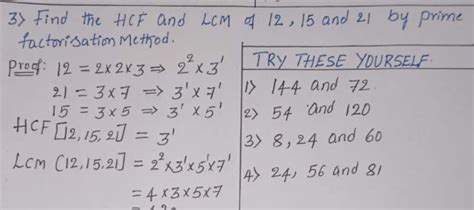 3) Find the HCF and LCM of 12, 15 and 21 by prime
factorisation Method.
Proof: 12 = 2×2×3 ⇒ 2²×3¹
21 = 3×7 ⇒ 3¹×7¹
15 = 3×5 ⇒ 3¹×5¹
HCF [12,15,21] = 3¹
LCM (12,15.21] = 2²×3¹×5¹×7¹
= 4×3×5×7
TRY THESE YOURSELF.
1) 144 and 72
2) 54 and 120
3) 8,24 and 60
4) 24, 56 and 81